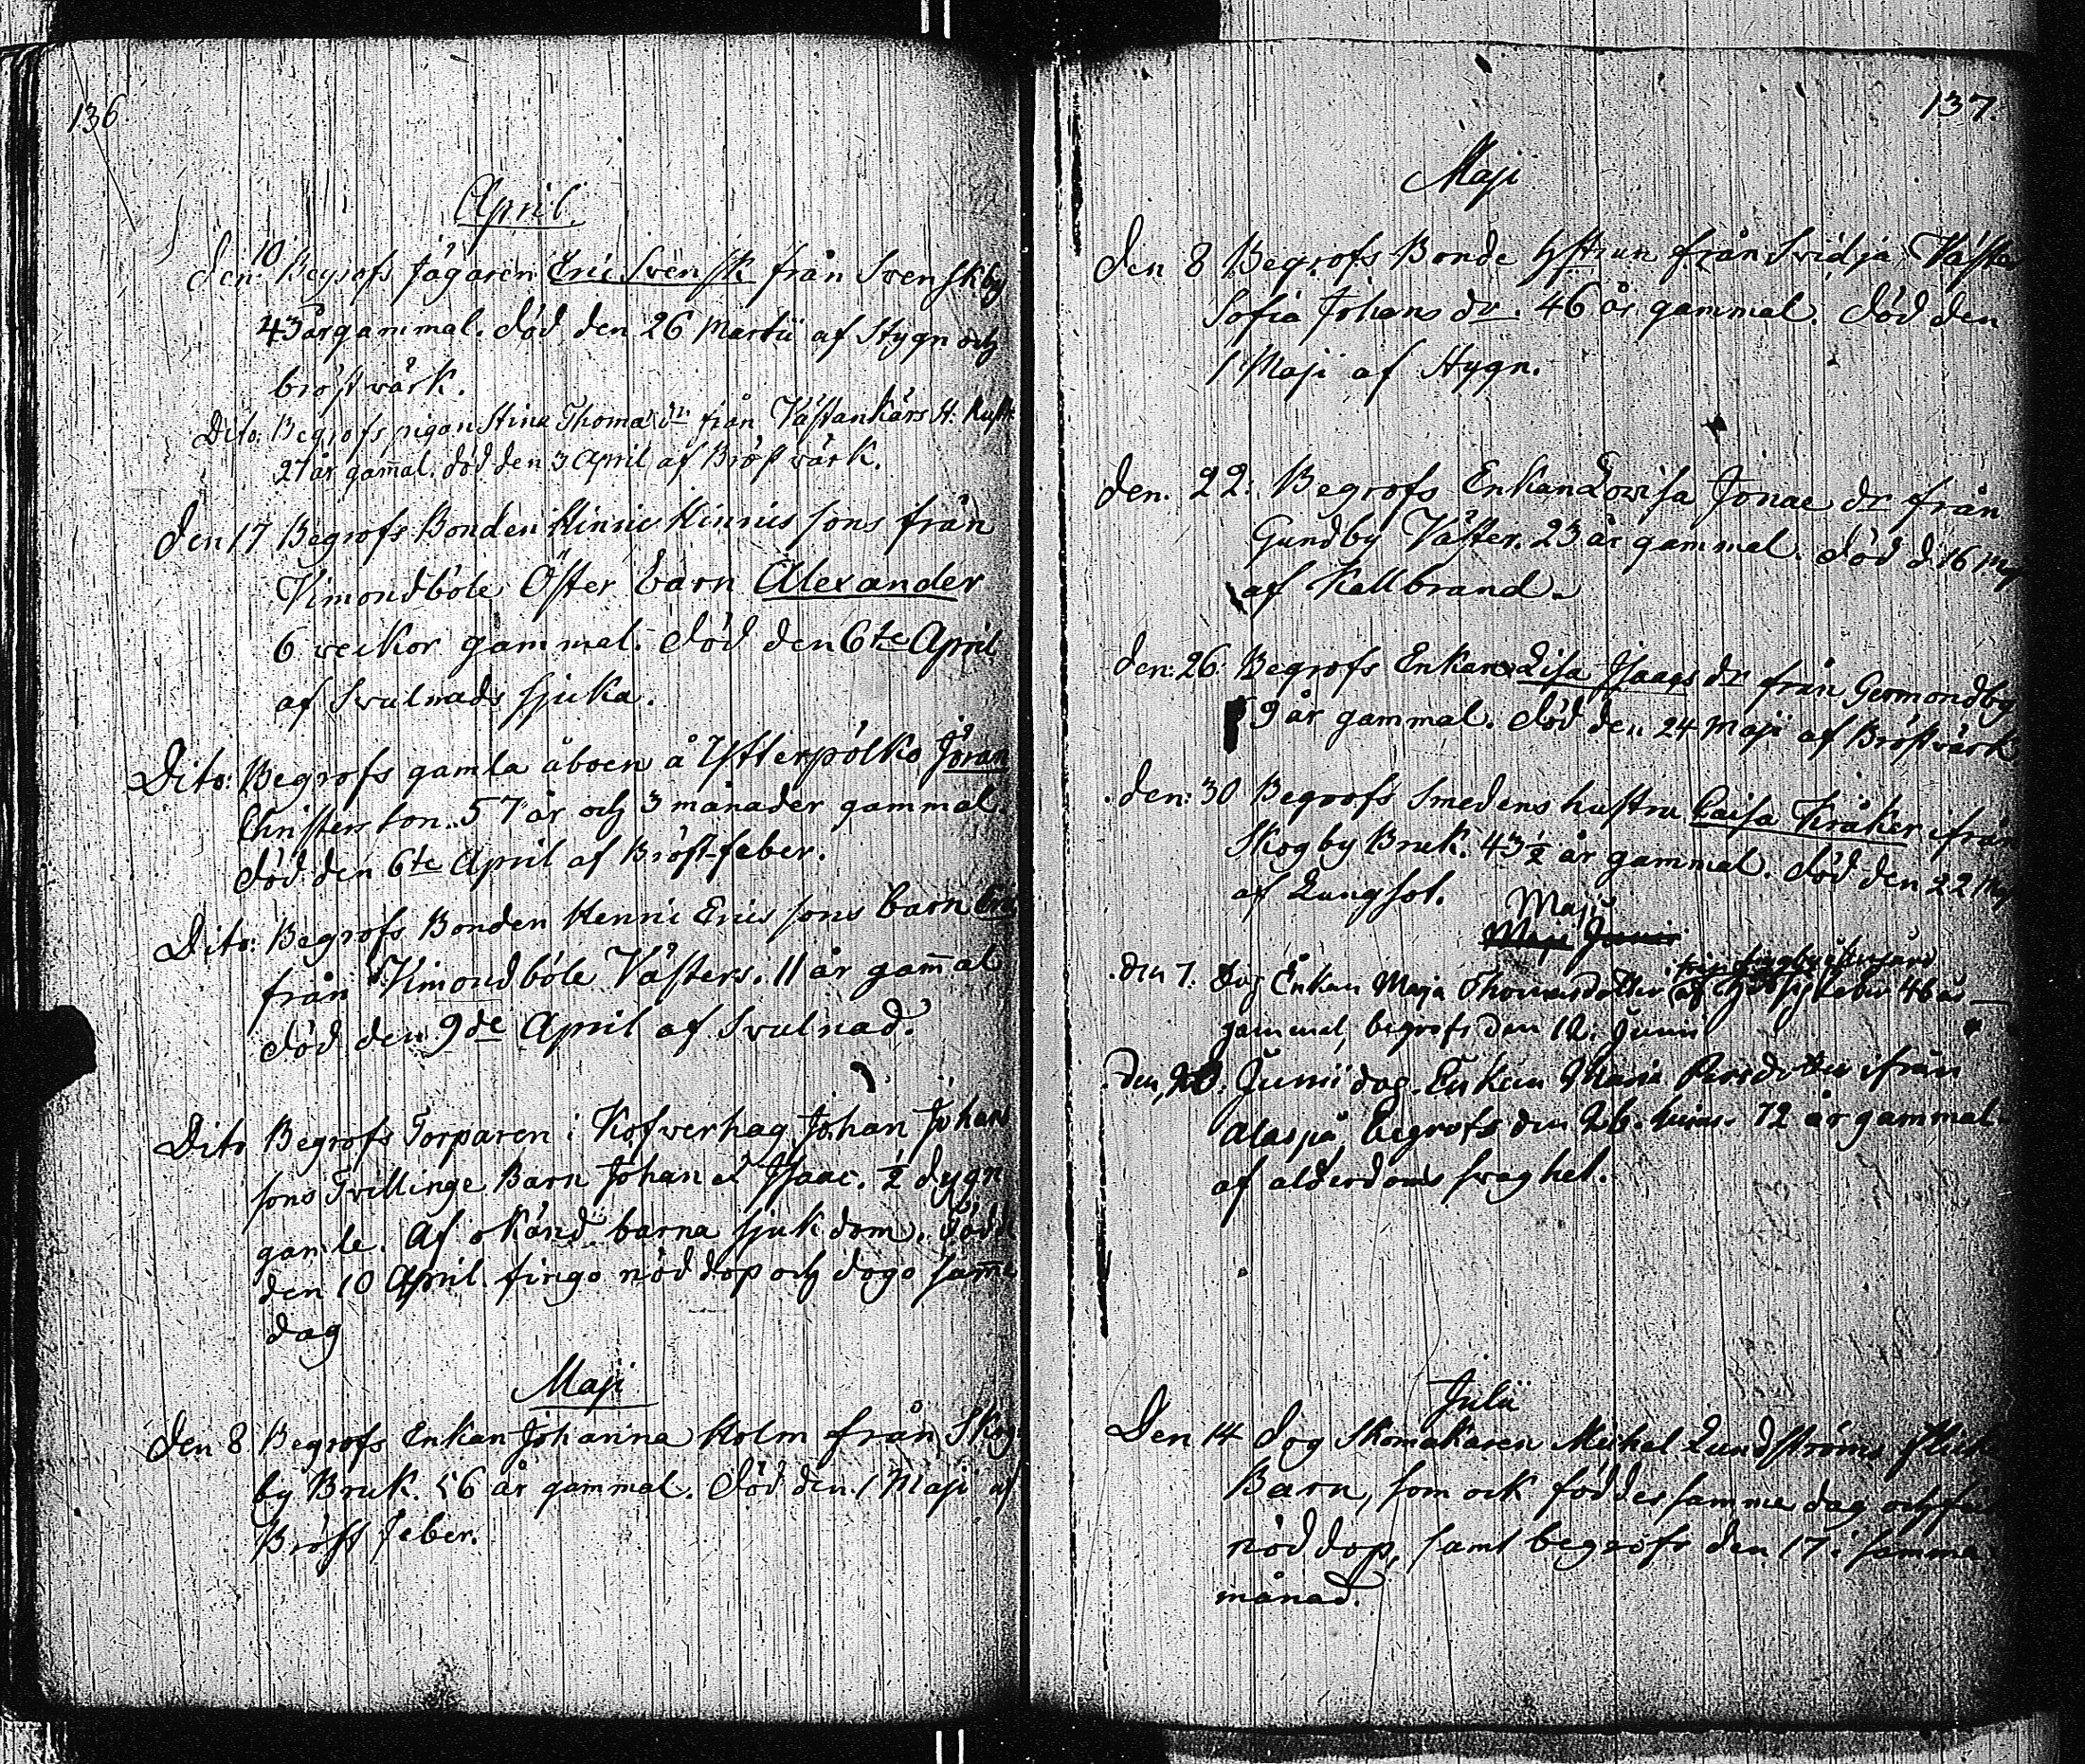 136
April
Den 10 Begrofs Jägaren Eric Svensk från Svenskby
43 år gammal. död den 26 Martii af Stygn och
bröstvärk.
Dito: Begrofs pigan Stina Thomæ dr från Västankärs
27 år gam̄al. död den 3 April af Bröstvärk.
Den 17 Begrofs Bonden Hinric Hinrics sons från
Kimondböle Öfter barn Alexander
6 veckor gammal. död den 6te April
af Svulnads sjuka.
Dito: Begrofs gamla åboen å Ytterpölko Jöran
Christersson. 57 år och 3 månader gammal.
död den 6te April af Bröst-feber.
Dito: Begrofs Bonden Henric Erics sons barn
från Kimondböle Västers. 11 år gam̄al
död den 9de April af Svulnad.
Dito Begrofs Torparen i Kofverhag Johan Johans
sons Tvillinge Barn Johan & Isaac. ½ dygn
gamle. Af okänd barna sjukdom. födde
den 10 April. fingo nöddop och dogo samma
dag
Maji
Den 8 Begrofs Enkan Johanna Holm från Skog-
by Bruk. 56 år gammal. död den 1 Maji af
Bröst feber.
137.
Maji
Den 8 Begrofs Bonde hustrun från Svidja Väster
Sofia Johans dr. 46 år gammal. död den
1 Maji af Stygn.
den. 22: Begrofs Enkan Lovisa Jonae dr från
Gundby Väster. 23 år gammal. död d. 16 Maj
af Kallbrand.
den: 26 Begrofs Enkan Lisa Isaacs dr från Germondby
9 år gammal. död den 24 Maji af Bröstvärk
den: 30 Begrofs Smedens hustru Caisa Kråker ifrån
Skogby Bruk. 43½ år gammal. död den 22 Maj
af Lungsot.
Maji
Maji Junii
den 7. Dog Enkan Maja Thomasdotter af 46 år
gammal, begrofs den 12. Junii
den, 20. Junii dog. Enkan Maria Persdotter ifrån
Alaspä, begrofs den 26. hujus. 72 år gammal.
af alderdoms svaghet.
Julii
Den 14 Dog Skomakaren Michel Lundströms
Barn, som ock föddes samma dag och
nöddop, samt begrofs den 17 i samma
månad.